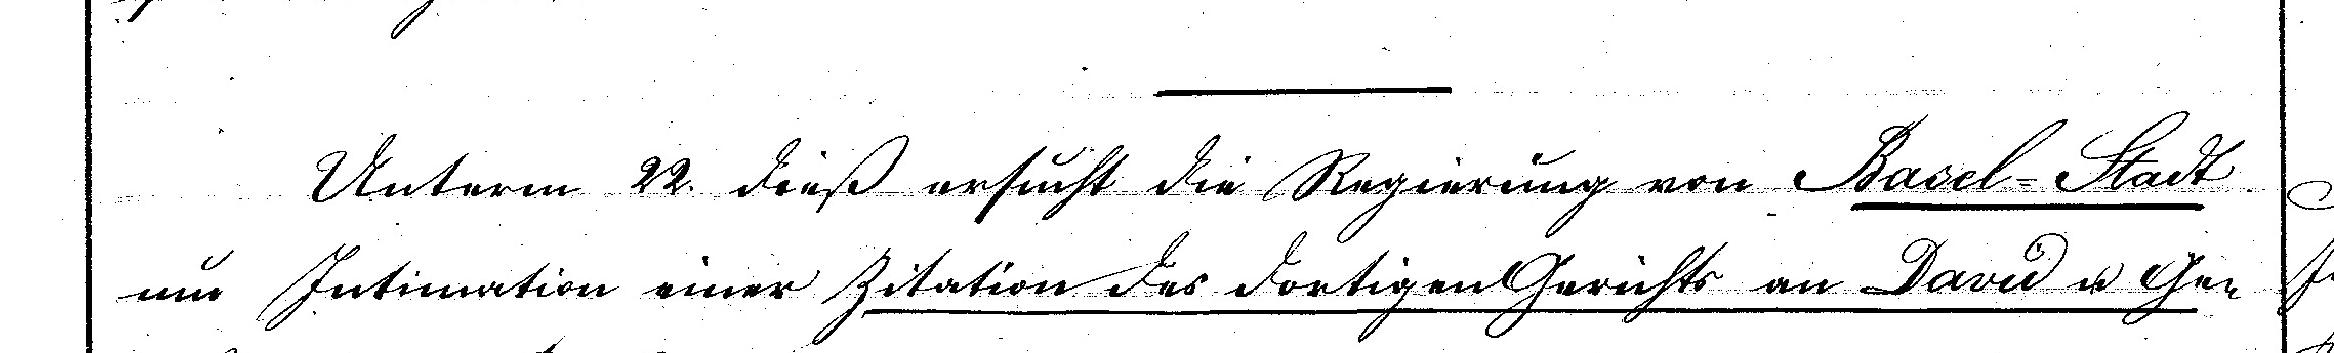 Unterm 22. dieß ersucht die Regierung von Basel-Stadt
um Intimation einer Zitation des dortigen Gerichts an David u Ge-